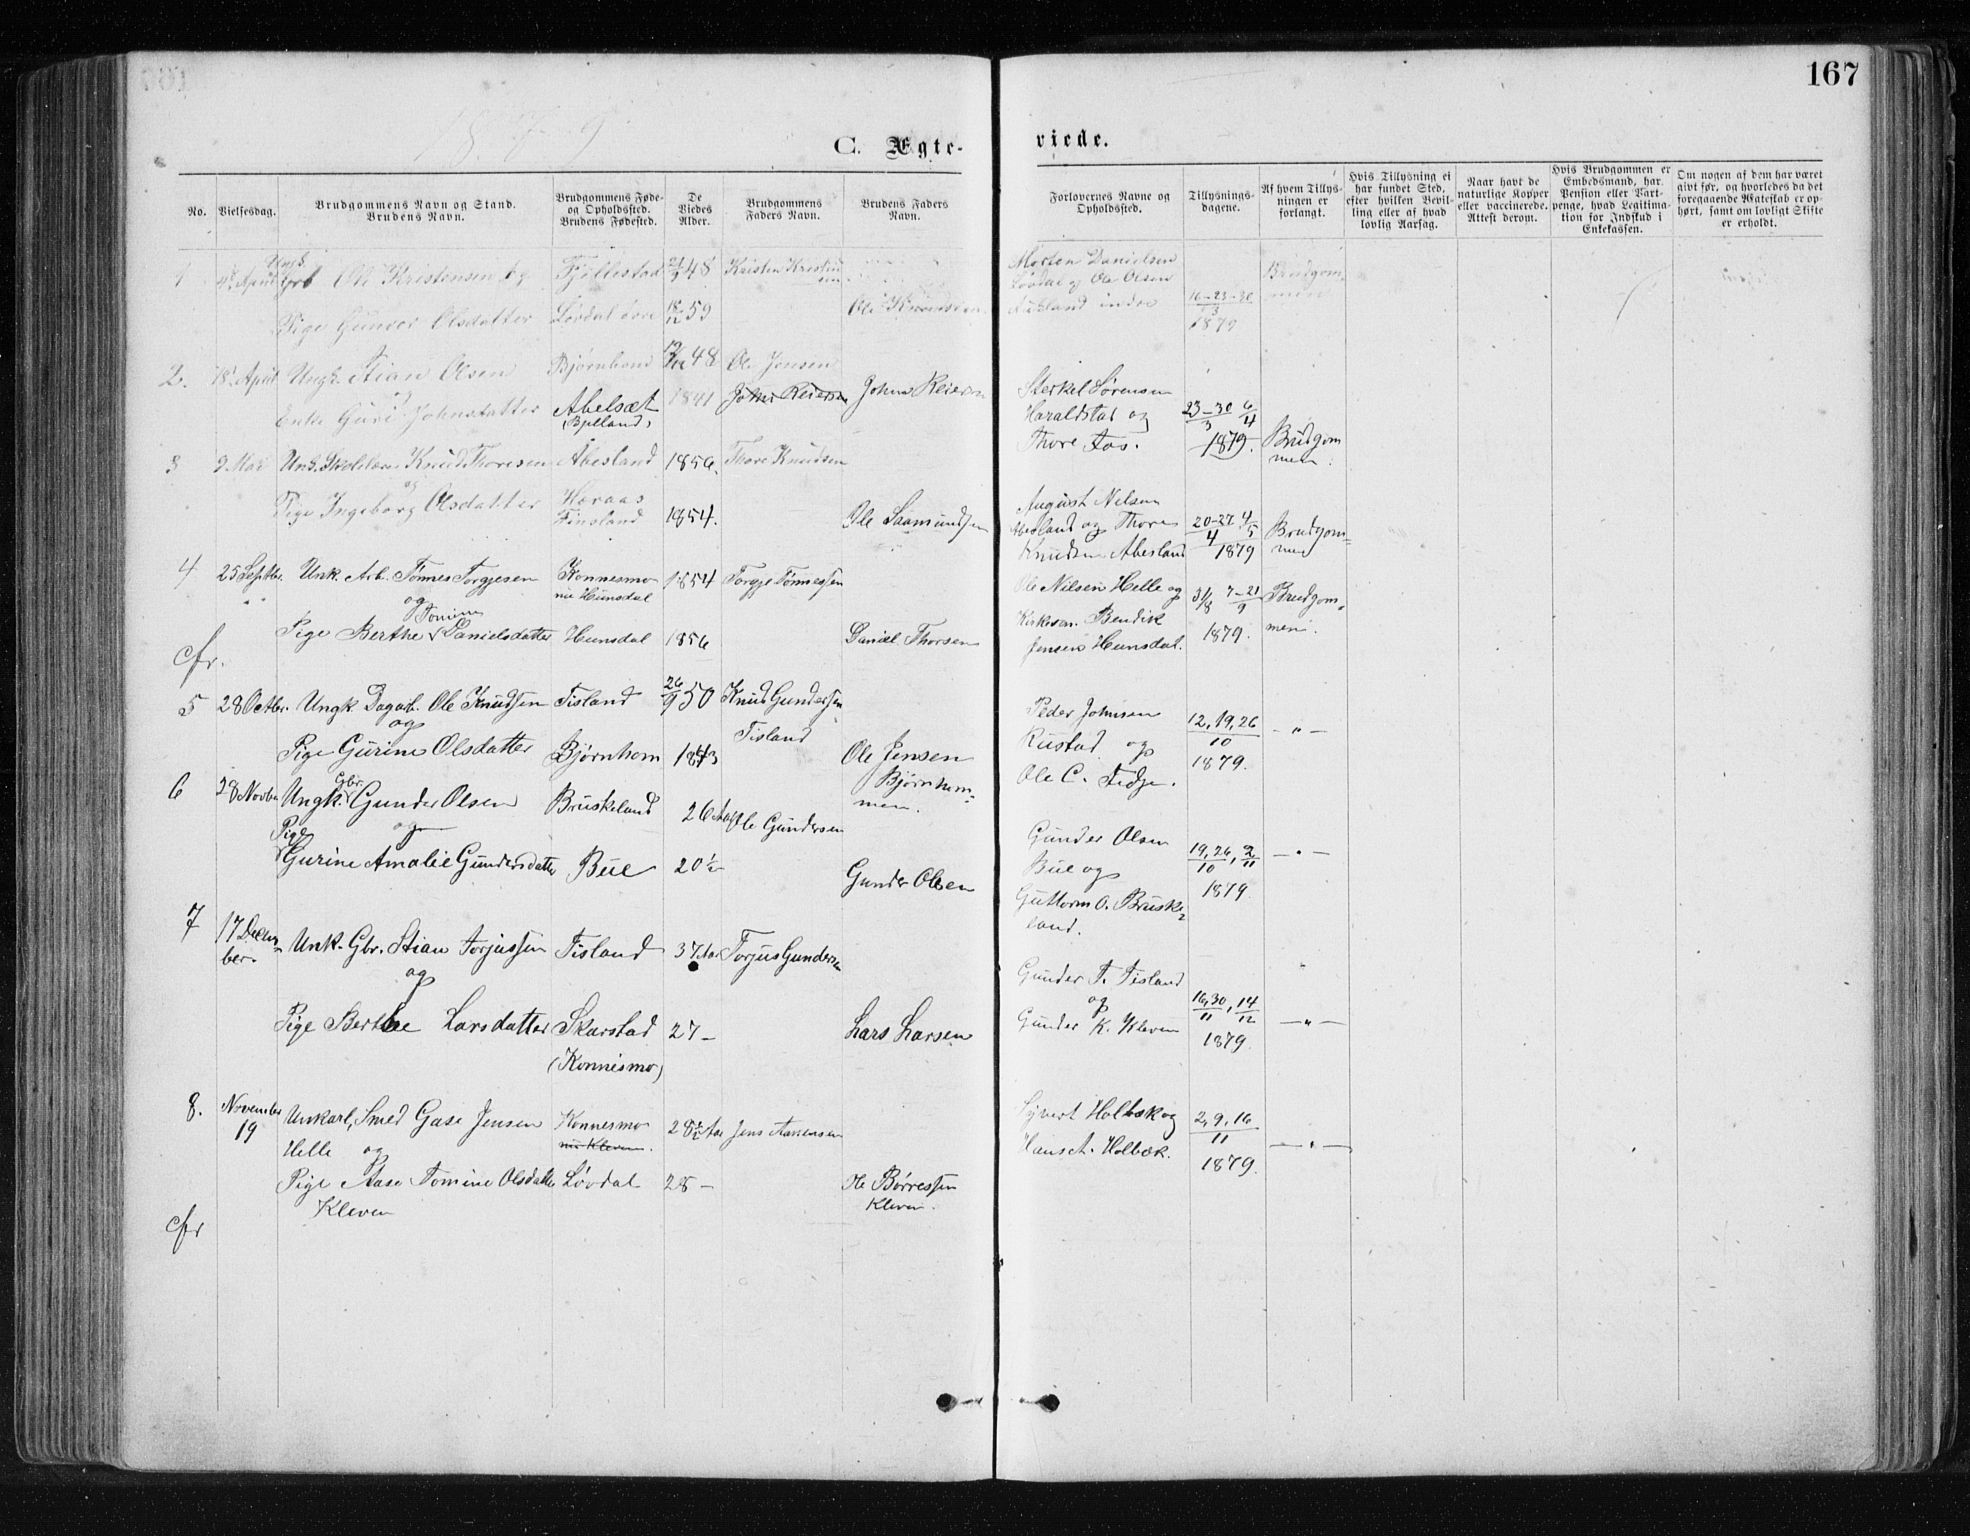 167
1879
C. Ægte- viede.
No.
Vielsesdag.
Brudgommens Navn og Stand.
Brudens Navn.
Brudgommens Føde-
og Opholdssted.
Brudens Fødested.
De
Viedes
Alder.
Brudgommens
Faders Navn.
Brudens Faders
Navn.
Forlovernes Navne og
Opholdssted.
Tillysnings-
dagene.
Af hvem Tillys-
ningen er
forlangt.
Hvis Tillysning ei
har fundet Sted,
efter hvilken Bevil-
ling eller af hvad
lovlig Aarsag.
Naar havt de
naturlige Kopper
eller vaccinerede.
Attest derom.
Hvis Brudgommen er
Embedsmand, har
Pension eller Vart-
penge, hvad Legitima-
tion for Indskud i
Enkekassen.
Om nogen af dem har været
givt før, og hvorledes da det
foregaaende Ægteskab er op-
hørt, samt om lovligt Skifte
er erholdt.
1 April Ungk. Ole Kristensen og Fjellestad 48
Pige Gunvor Olsdatter Løvdal 18/12 59
Morten Danielsen
Løvdal og Ole Olsen
16-23-30
3
1879
Brudgom-
men
2. 18 April Ungk. Stian Olsen Bjørnhom 48 Ole Jensen
og
Enke Guri Johnsdatter Abelsæt 1841 John Reiersen John Reiersen
Sterkel Sørensen
Haraldstad og
Thore Aas.
23-30 6
3 4
1879.
Brudgom
men.
3 9 Mai Knud Thoresen Abesland 1856. Thore Knudsen
og
Pige Ingeborg Olsdatter Haraas
Finsland 1854. Ole Saamundsen
August Nilsen
Abesland og Thore
Knudsen Abesland
20-27 4
4 5
1879
Brudgom=
men
4 25 Septbr. Unk. Arb. Tønnes Torgjesen Konnesmo 1854 Torgje Tønnessen
nu Hunsdal
og
Tomine
Pige Berthe Danielsdatter Hunsdal 1856 Daniel Thorsen
Ole Nilsen Helle og
Kirkesan. Bendik
Jensen Hunsdal.
31/8 7-21
9
1879.
Brudgom=
men.
cfr.
5 28 Octbr. Ungk. Dagarb. Ole Knudsen Tisland 26/9 50 Knud Gundersen
og Tisland
Pige Gurine Olsdatter Bjørnhom 1843 Ole Jensen
Bjørnhom=
men.
Peder Johnsen
Rustad og
Ole C. Fidje.
12, 19, 26
10
1879.
- " -
6 28 Novbr Ungk. Gbr. Gunder Olsen Bruskeland 26 Aar Ole Gundersen
og
Pige
Gurine Amalie Gundersdatter Bue 20½ Gunder Olsen
Gunder Olsen
Bue og
Guttorm O. Bruske=
land.
19, 26, 2
10 11
1879
- " -
7 17 Decem=
ber. Unk. Gbr. Stian Torjussen Tisland 37 Aar Torjus Gundersen
og
Pige Berthe Larsdatter Skarstad 27 - Lars Larsen
(Konnismo)
Gunder T. Tisland
og
Gunder K. Kleven
16, 30, 14
11 12
1879.
- " -
8. November
19 Unkarl, Smed Gase Jensen Konnesmo 28½ Aar Jens Aanensen
Helle og nu Kleven.
Pige Aase Tomine Olsdatter Løvdal 28 - Ole Børressen
Kleven Kleven.
Syvert Holbæk og
Hans A. Holbæk.
2, 9, 16
11
1879.
- " -
cfr